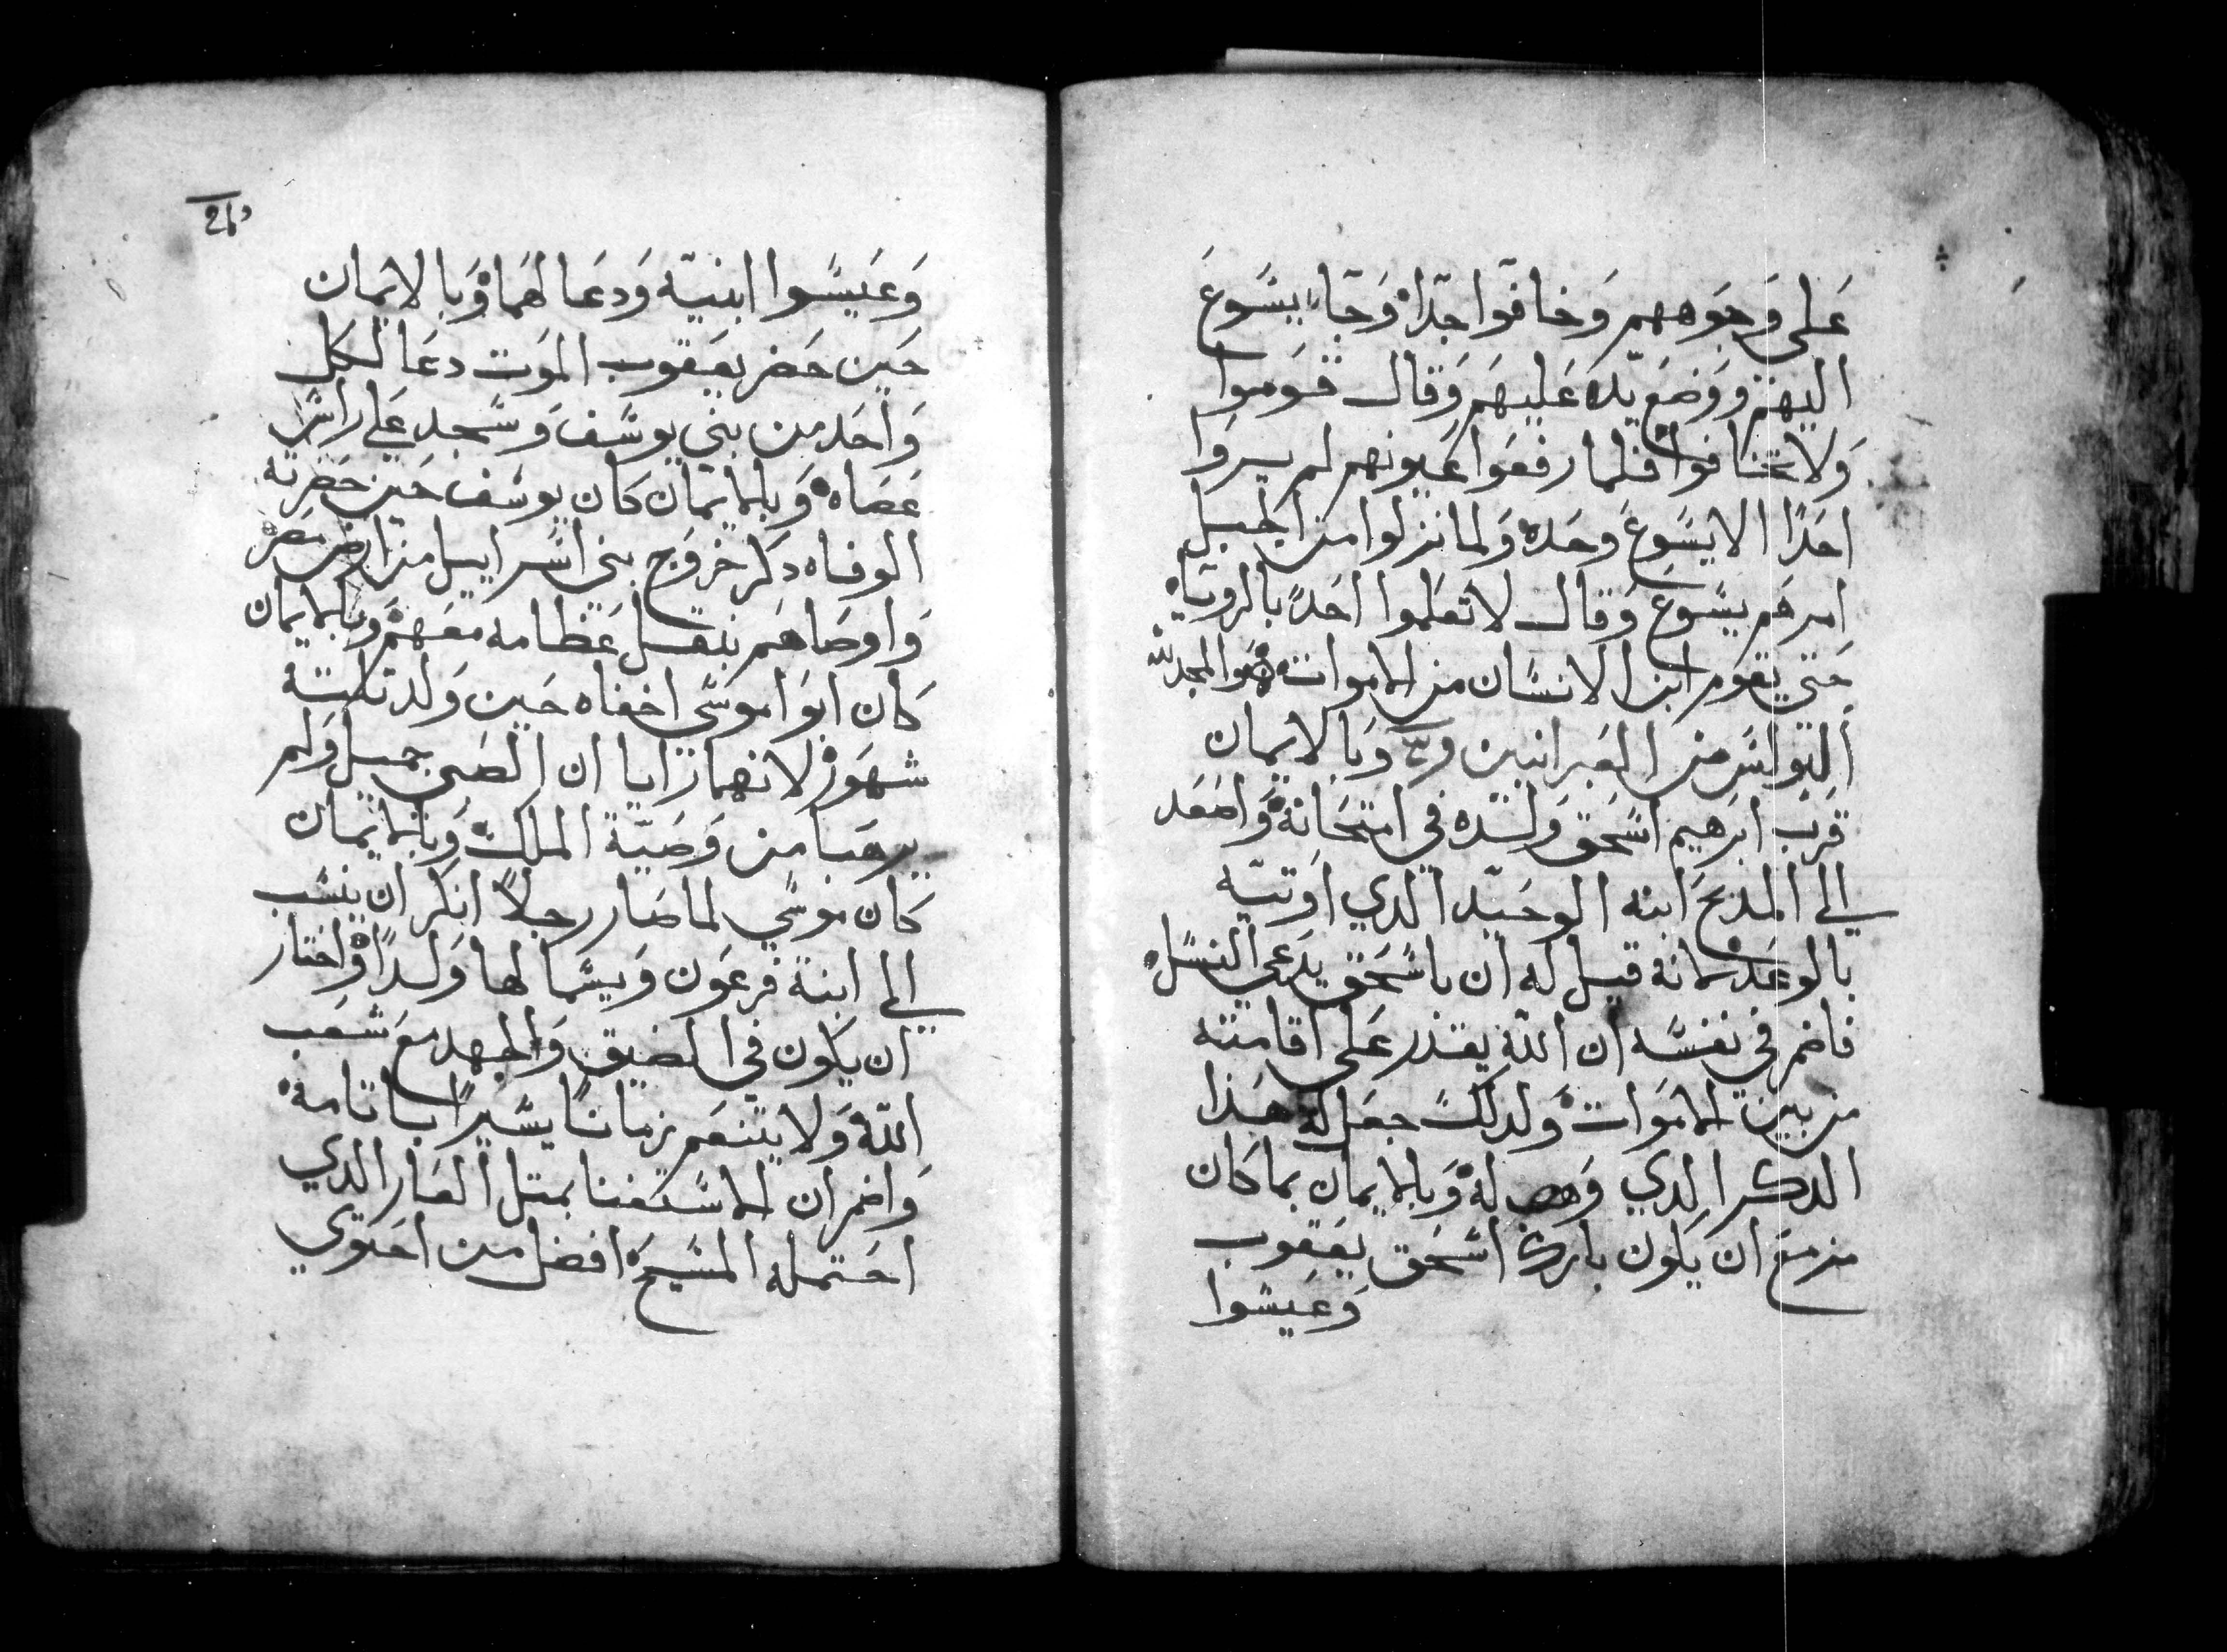 على وجوههم وخافوا جدا وجاء يسوع
اليهم ووضع يده عليهم وقال قوموا
ولا تخافوا فلما رفعوا عيونهم لم يروا
احدا الا يسوع وحده ولما نزلوا من الجبل
امرهم يسوع وقال لا تعلموا احدا بالروياه
حتى يقوم ابن الانسان من الاموات والمجد لله
البولس من العبرانيين وبالايمان
قرب ابرهيم اسحق ولده في امتحانه واصعد
الي المذبح ابنه الوحيد الدي اوتيه
بالوعد لانه قيل له ان باسحق يدعى النسل
فاضمر في نفسه ان الله يقدر على اقامته
من بين الاموات ولدلك جعل له هذا
الدكر الدي وهب له وبالايمان بما كان
مزمع ان يكون بارك اسحق يعقوب
وعيسوا
وعيسوا ابنيه ودعا لهما وبالايمان
حين حضر يعقوب الموت دعا لكل
واحد من بني يوسف وسجد علي راس
عصاه وبالايمان كان يوسف حين حضرته
الوفاه دكر خروج بني اسراييل من ارض مصر
واوصاهم بنقل عظامه معهم وبالايمان
كان ابوا موسى اخفاه حين ولد تلتة
شهور لانهما رايا ان الصبي جميل ولم
يرهبا من وصية الملك وبالايمان
كان موسي لما صار رجلا انكر ان ينسب
الي ابنة فرعون ويسما لها ولدا واختار
ان يكون في الضيق والجهد مع شعب
الله ولا يتنعم زمانا يسيرا باتامه
واضمر ان الاستغنا بمتل العار الدي
احتمله المسيح افضل من احتوي